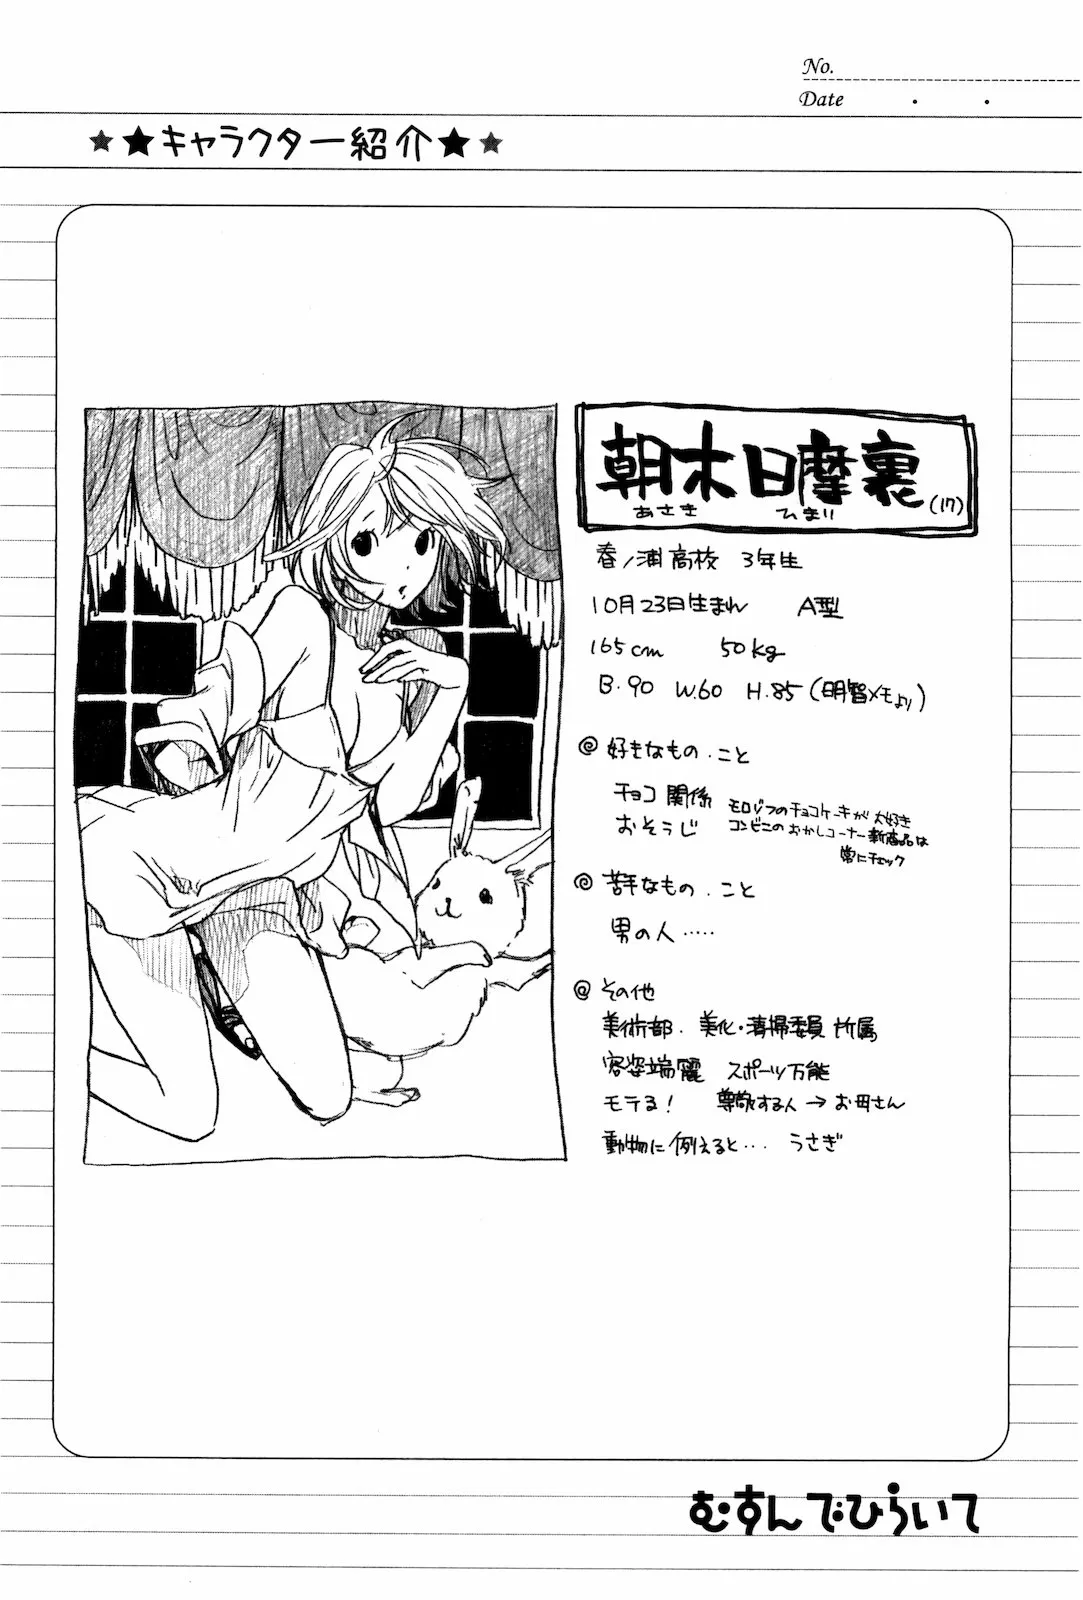 No.
Date . .
★★キャラクター紹介★★
朝木日摩裏(17)
あさき ひまり
春ノ浦高校 3年生
10月23日生まれ A型
165cm 50kg
B.90 W.60 H.85(明智メモより)
◎好きなもの.こと
チョコ関係 モロゾフのチョコケーキが大好き
おそうじ コンビニのおかしコーナー新商品は
常にチェック
◎苦手なもの.こと
男の人.....
◎その他
美術部.美化・清掃委員所属
容姿端麗 スポーツ万能
モテる! 尊敬する人→お母さん
動物に例えると... うさぎ
むすんでひらいて